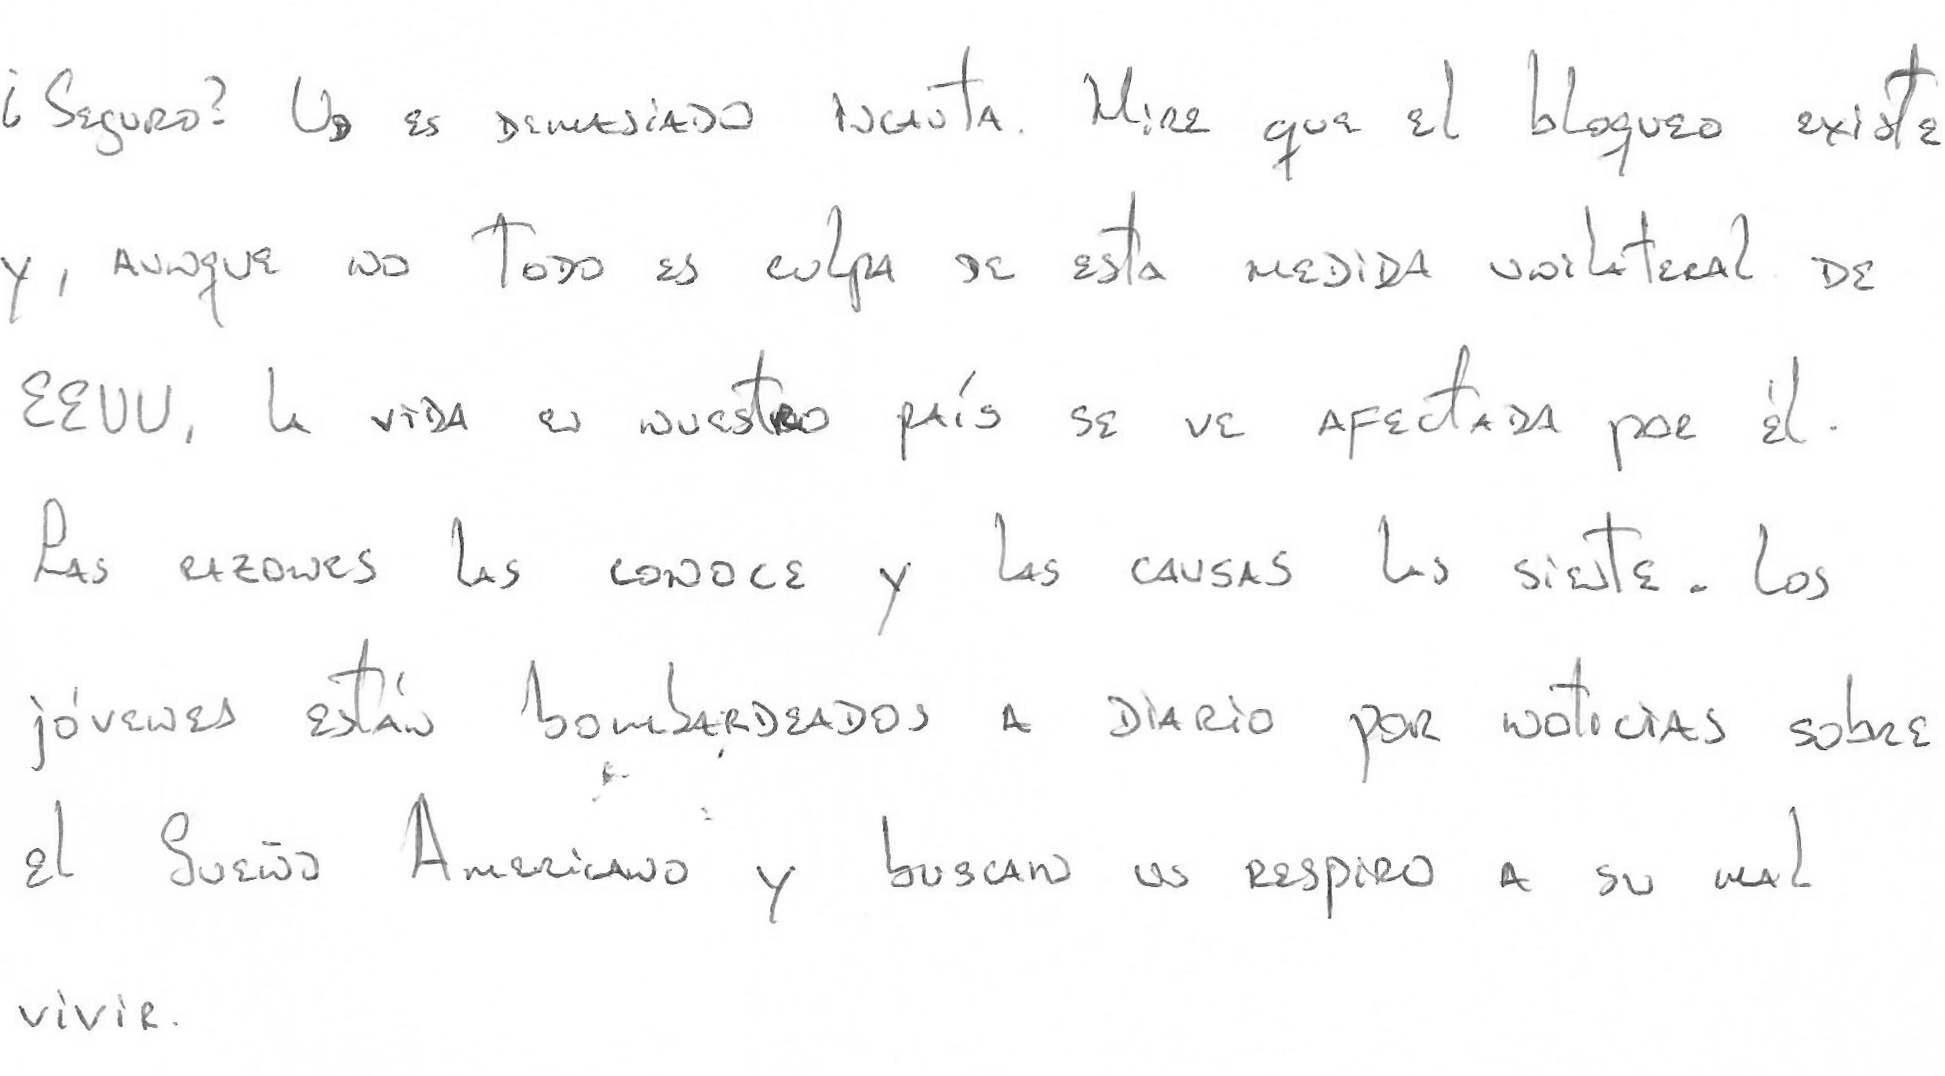 ¿Seguro? Ud es demasiado incauta. Mire que el bloqueo existe
y, aunque no todo es culpa de esta medida unilateral de
EEUU, la vida en nuestro país se ve afectada por él.
Las razones las conoce y las causas las siente. Los
jóvenes están bombardeados a diario por noticias sobre
el Sueño Americano y buscan un respiro a su mal
vivir.